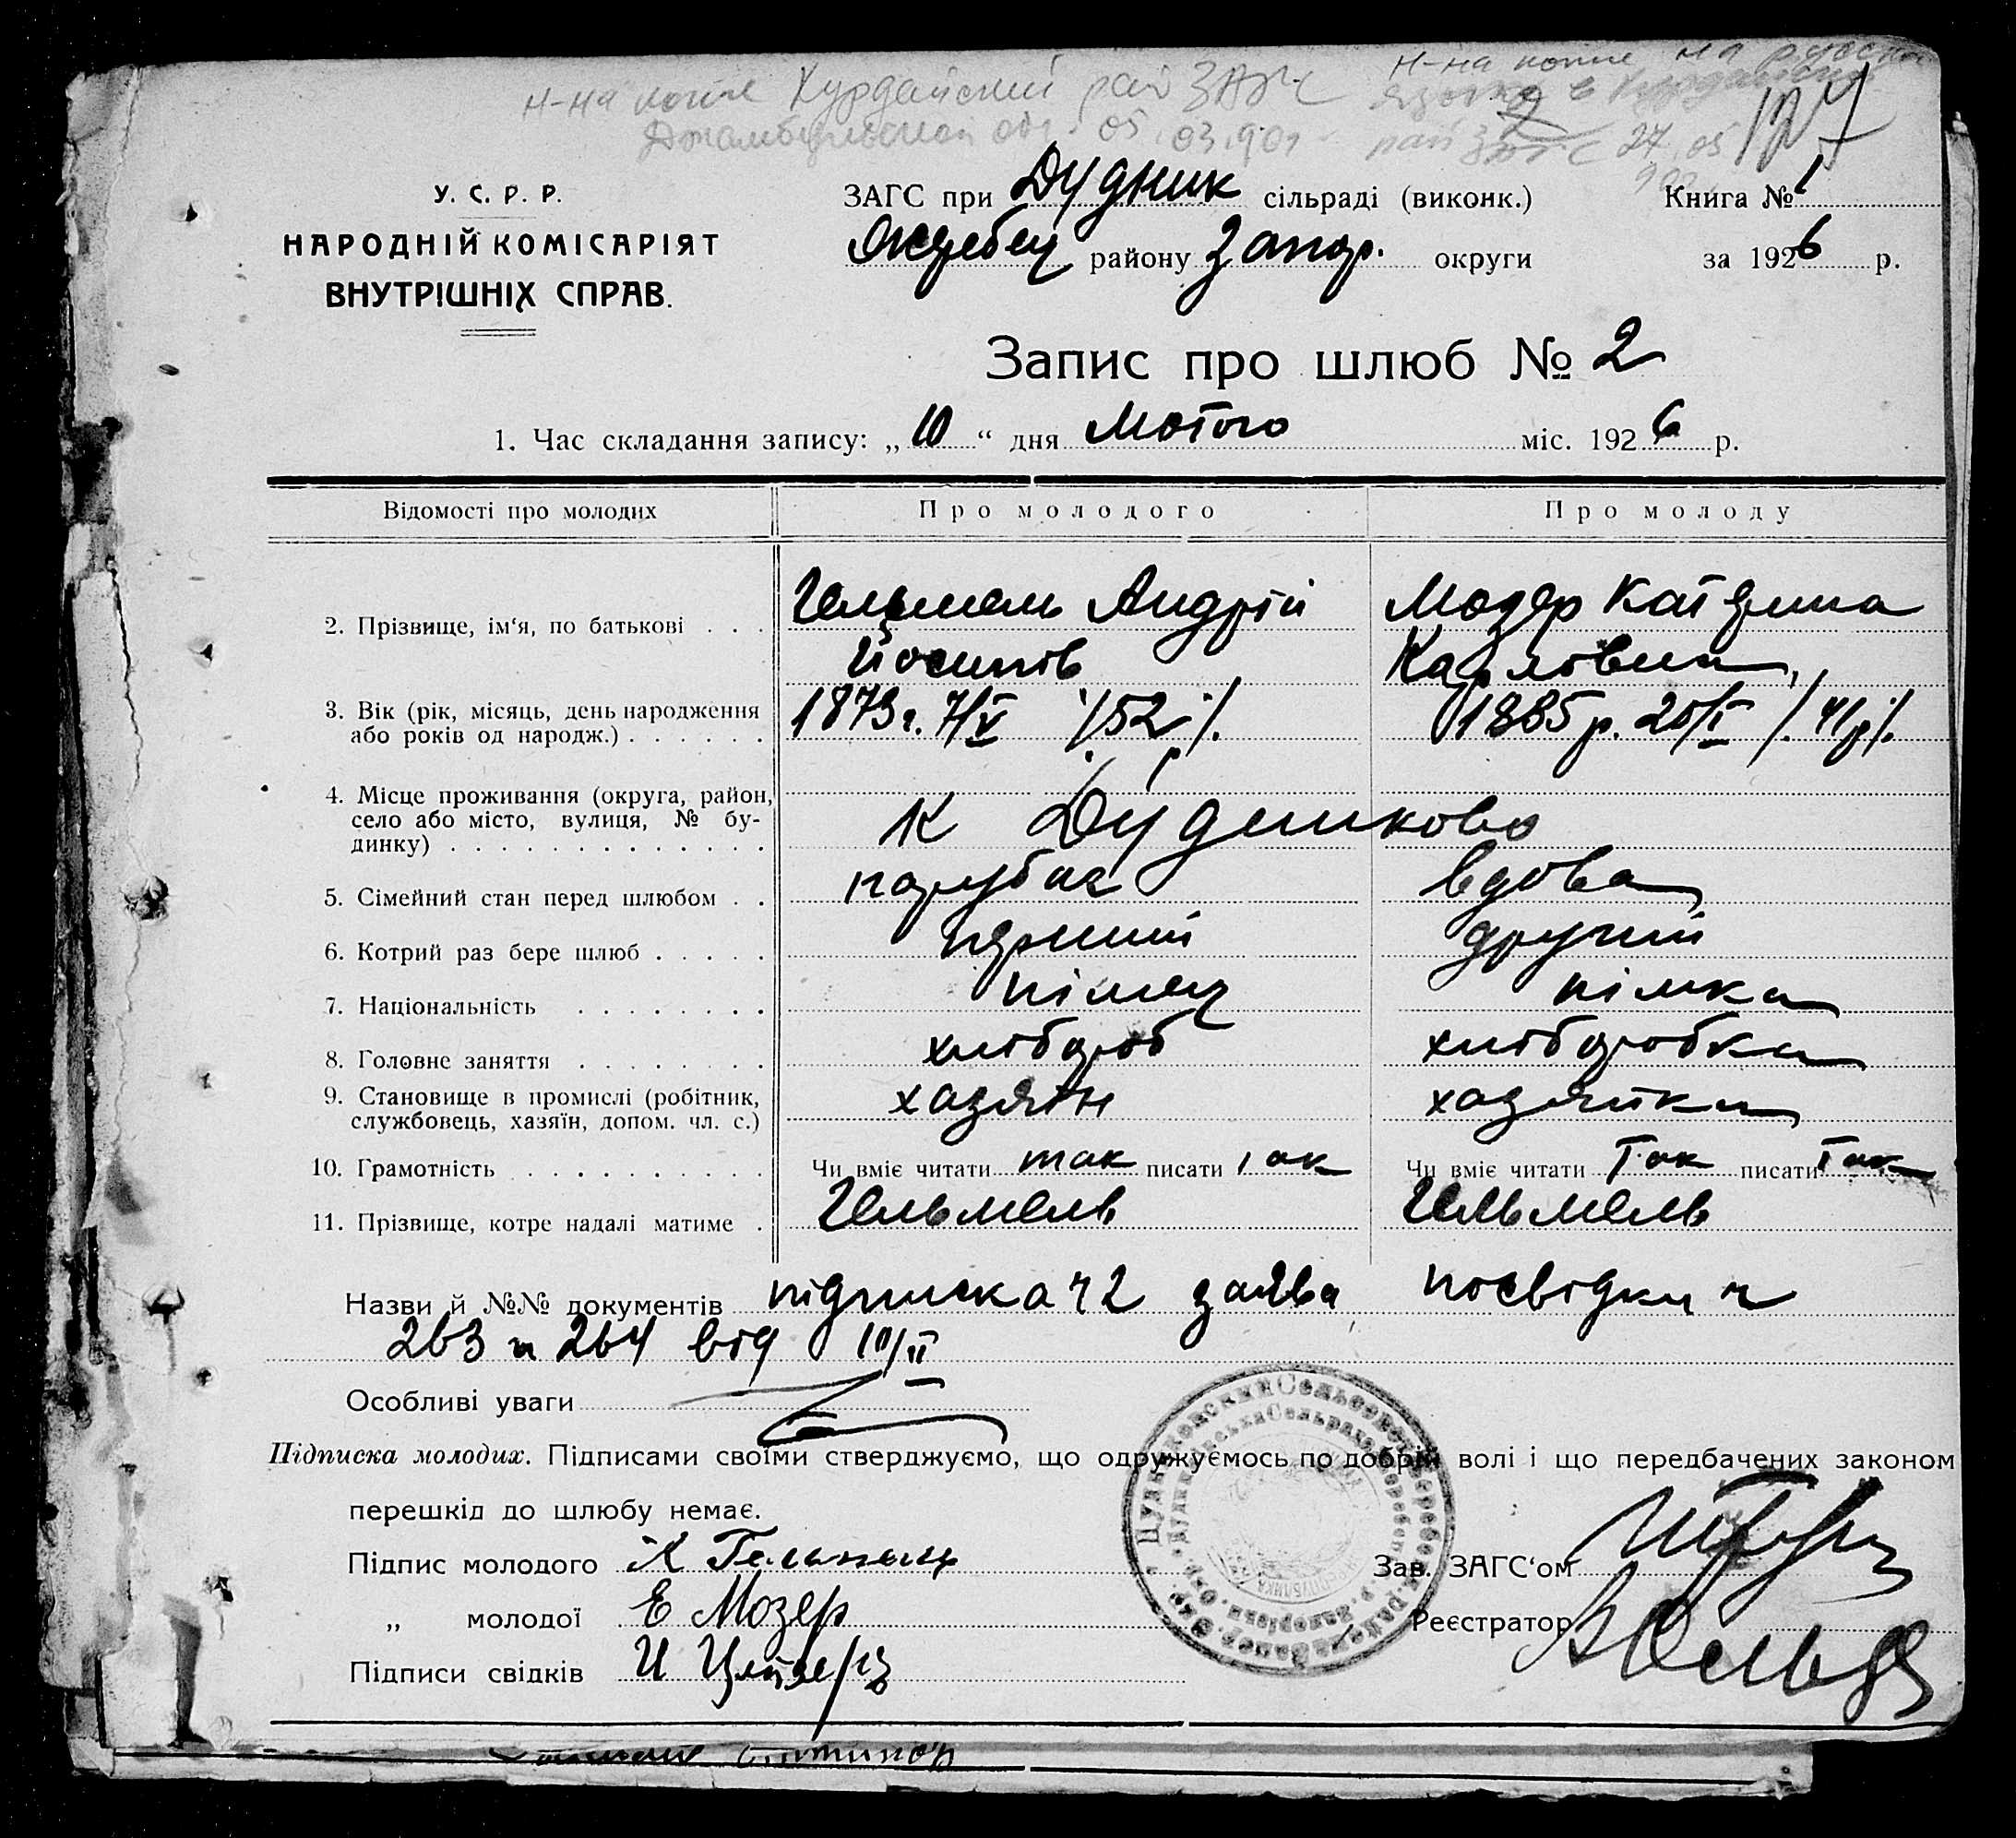 н-на копие Курдайский рай ЗАГС
Джамбульской обл. 05.03.90г
н-на копие на русском
языке в Курдайский
рай ЗАГС 27.05
У. С. Р. Р.
НАРОДНІЙ КОМІСАРІЯТ
ВНУТРІШНІХ СПРАВ.
ЗАГС при Дудник сільраді (виконк.)
району Запор. округи
Книга № 1
за 1926 р.
Запис про шлюб № 2
1. Час складання запису: „10“ дня Лютого міс. 1926 р.
Відомості про молодих Про молодого Про молоду
2. Прізвище, ім‘я, по батькові . . . Гельмель Андрій Мозер Катерина
Йосипів Карловна
3. Вік (рік, місяць, день народження 1873 г. 7/V /52 р/. 1885 р. 20/I /. 41 р/.
або років од народж.) . . . . . .
4. Місце проживання (округа, район,
село або місто, вулиця, № бу- К Дудниково
динку) . . . . . . . . . . . . .
5. Сімейний стан перед шлюбом . . парубок вдова
6. Котрий раз бере шлюб . . . . . перший другий
7. Національність . . . . . . . . німец німка
8. Головне заняття . . . . . . . . хлібороб хліборобка
9. Становище в промислі (робітник, хазяїн хазяйка
службовець, хазяїн, допом. чл. с.)
10. Грамотність . . . . . . . . . . Чи вміє читати так писати так Чи вміє читати Так писати Так
11. Прізвище, котре надалі матиме . Гельмель Гельмель
Назви й №№ документів підписка ч 2 заява, посвідки ч
263 и 264 від 10/II
Особливі уваги
Підписка молодих. Підписами своїми стверджуємо, що одружуємось по добрій волі і що передбачених законом
перешкід до шлюбу немає.
Підпис молодого
„ молодої Е Мозер
Підписи свідків И
Зав. ЗАГС‘ом
Реєстратор